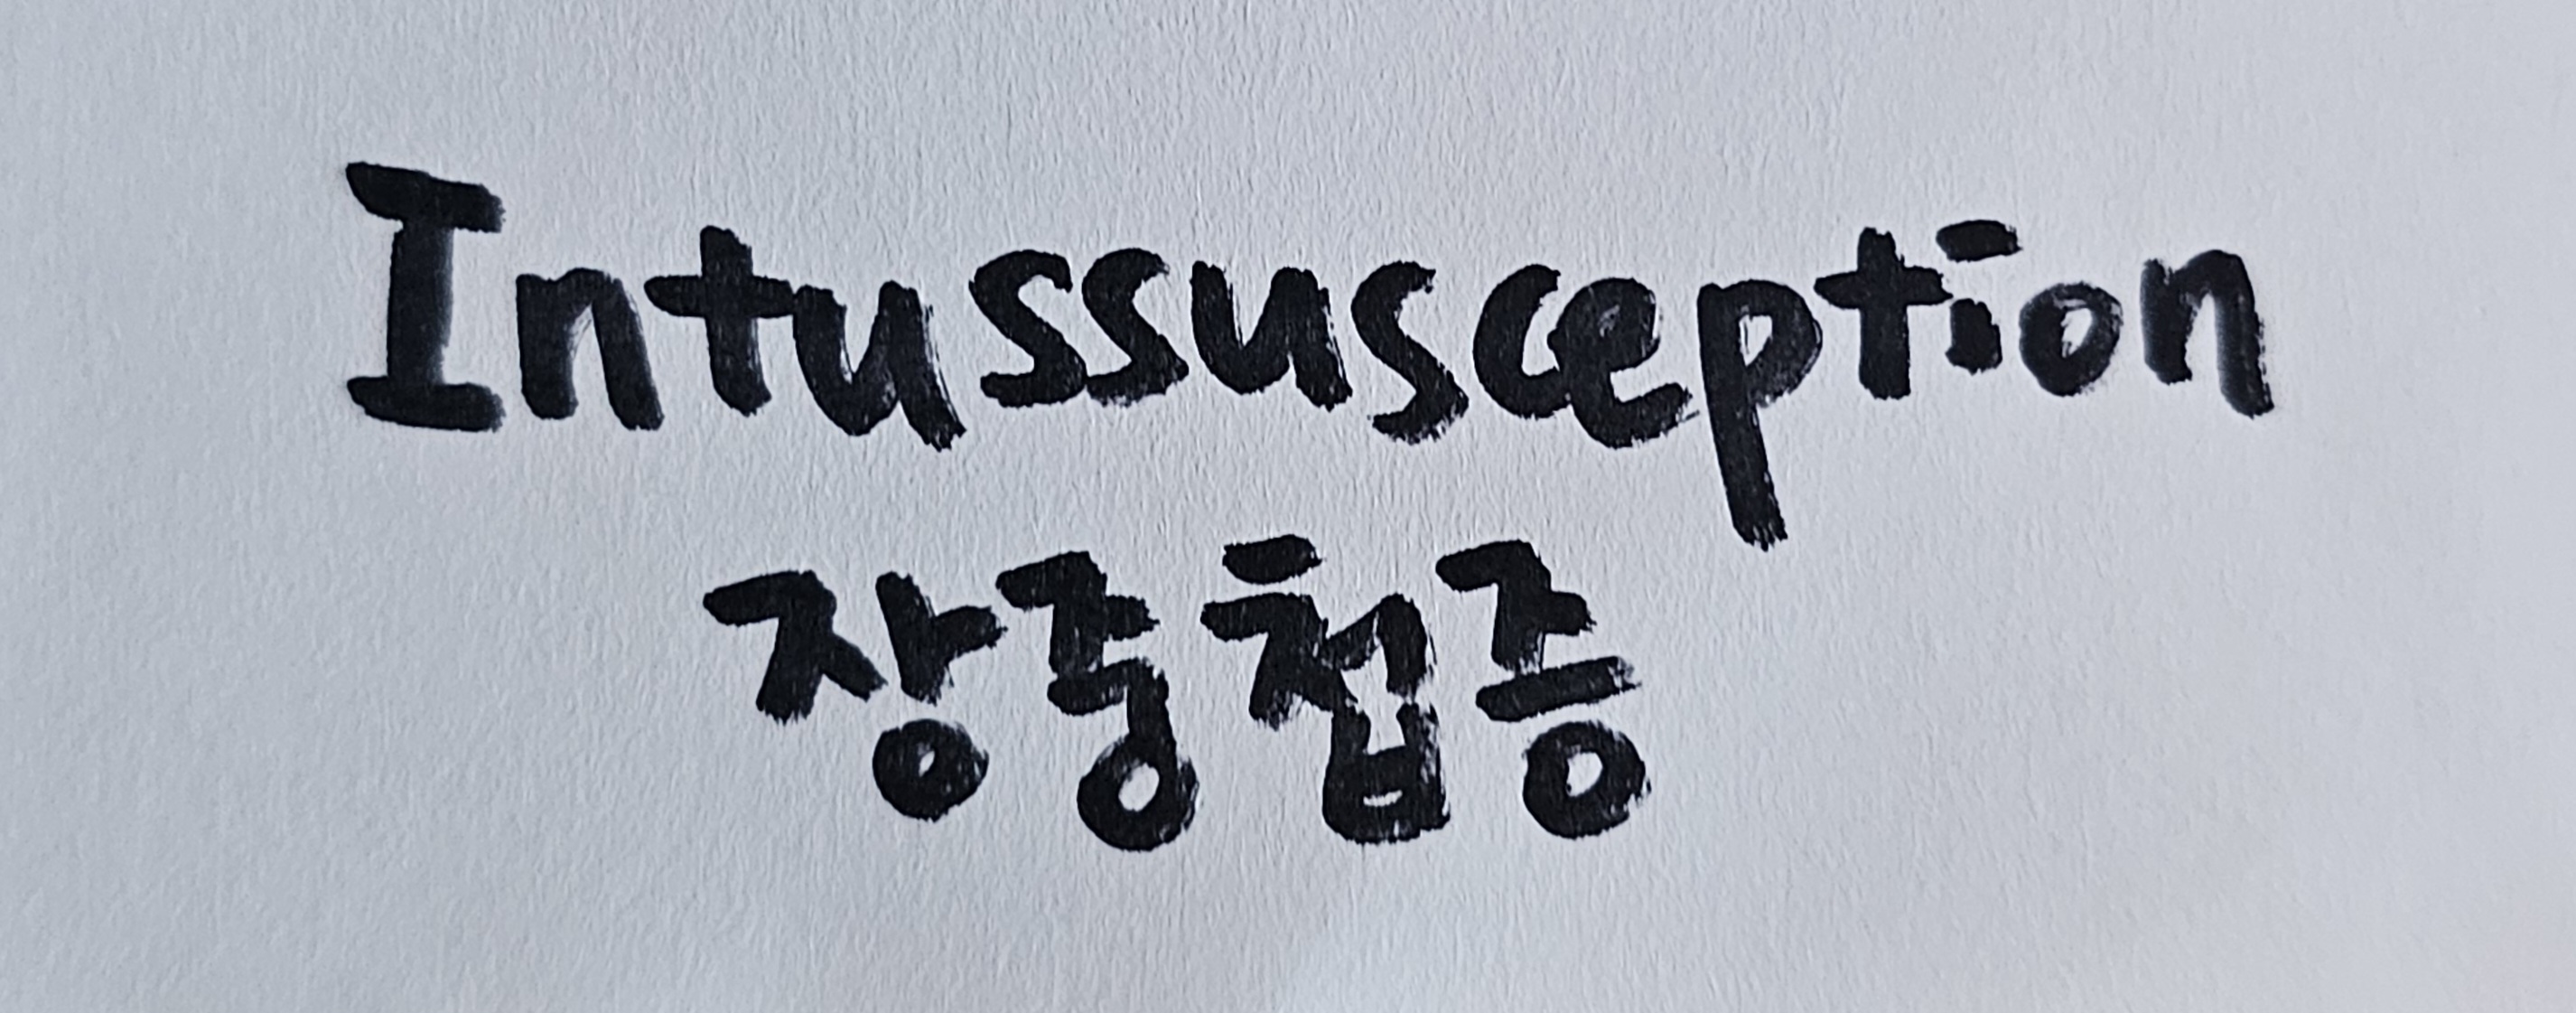 Intussusception
장중첩증